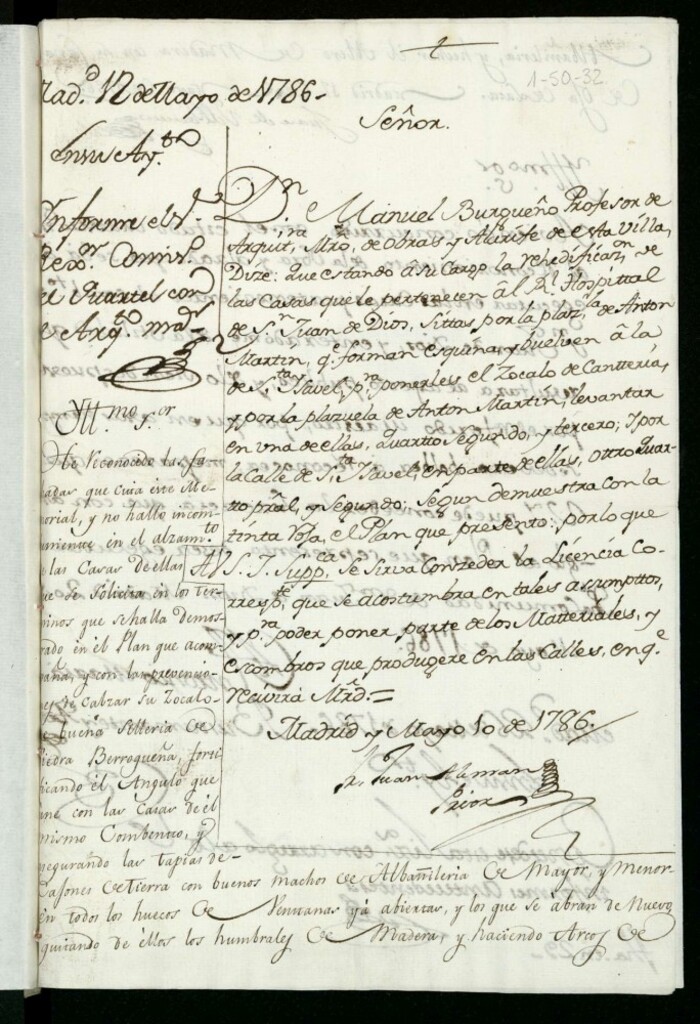 1-50-32
Mad.d 12 de Mayo de 1786-
En su Ay.to
Informe el S.r
Rex.or Comis.o
el Quartel con
el Arq.to ma.r
Señor.
D.n Manuel Burgueño Profesor de
Arquit.ra, Mro, de Obras y Alarife de esta Villa,
Dize: que estando â su Cargo la rehedificaz.on de
las Casas que le pertenecen âl R.l Hospittal
de S.n Juan de Dios, Sittas, por la plaz.la de Anton
Martin, q.e forman esquina, y buelven â la
de S.ta Ysavel, p.ra ponerles el Zocalo de Canttería,
y por la plazuela de Anton Martin, levantar
en una de ellas, Quartto Segundo, y tercero; Y por
la Calle de S.ta Ysavel, en parte de ellas, Ottro Quar-
tto pral, y Segundo; Segun demuestra con la
tinta Roja, el Plan que presento: por lo que
A V. S. I. Supp.ca se sirva Conzeder la Licencia Co-
rresp.te, que se acostumbra en tales asumpttos,
y p.ra poder poner parte de los Matteriales, y
escombros que produgere en las Calles, en q.e
recivirá Mrd.=
Madrid y Mayo 10 de 1786.
Fr. Juan Aleman
Prior
Yll.mo S.or
He Reconocido las fa-
hadas que cita este Me-
morial, y no hallo incom-
veniente en el alzam.to
de las Casas de ellas
que se Solicita en los ter-
minos que se halla demos-
trado en el Plan que acom-
paña, y con las prevencio-
nes de Calzar su Zocalo
de buena Silleria de
Piedra Berroqueña, forti
ficando el Angulo que
une con las Casas de el
mismo Combento, y
asegurando las tapias de-
Cajones de tierra con buenos machos de Albañileria de Mayor, y Menor-
en todos los huecos de Ventanas ya abiertas, y los que se abran de Nuevo
quitando de éllos los humbrales de Madera, y haciendo Arcos de